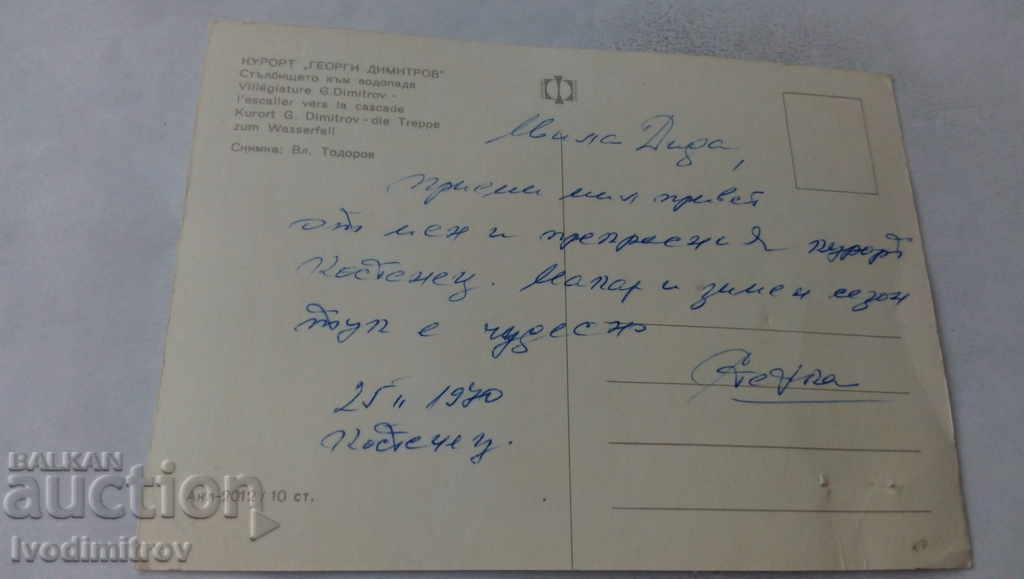 КУРОРТ „ГЕОРГИ ДИМИТРОВ"
Стълбището към водопада
Villégiature G.Dimitrov -
l'escalier vers la cascade
Kurort G. Dimitrov - die Treppe
zum Wasserfall
Снимка: Вл. Тодоров
Мила Дида,
приеми мил привет
от мен и прекрасния курорт
Костенец. Макар и зимен сезон
тук е чудесно
25 II 1970
Костенец.
Ακл-2012 / 10 ст.
BALKAN
auction
Ivodimitrov